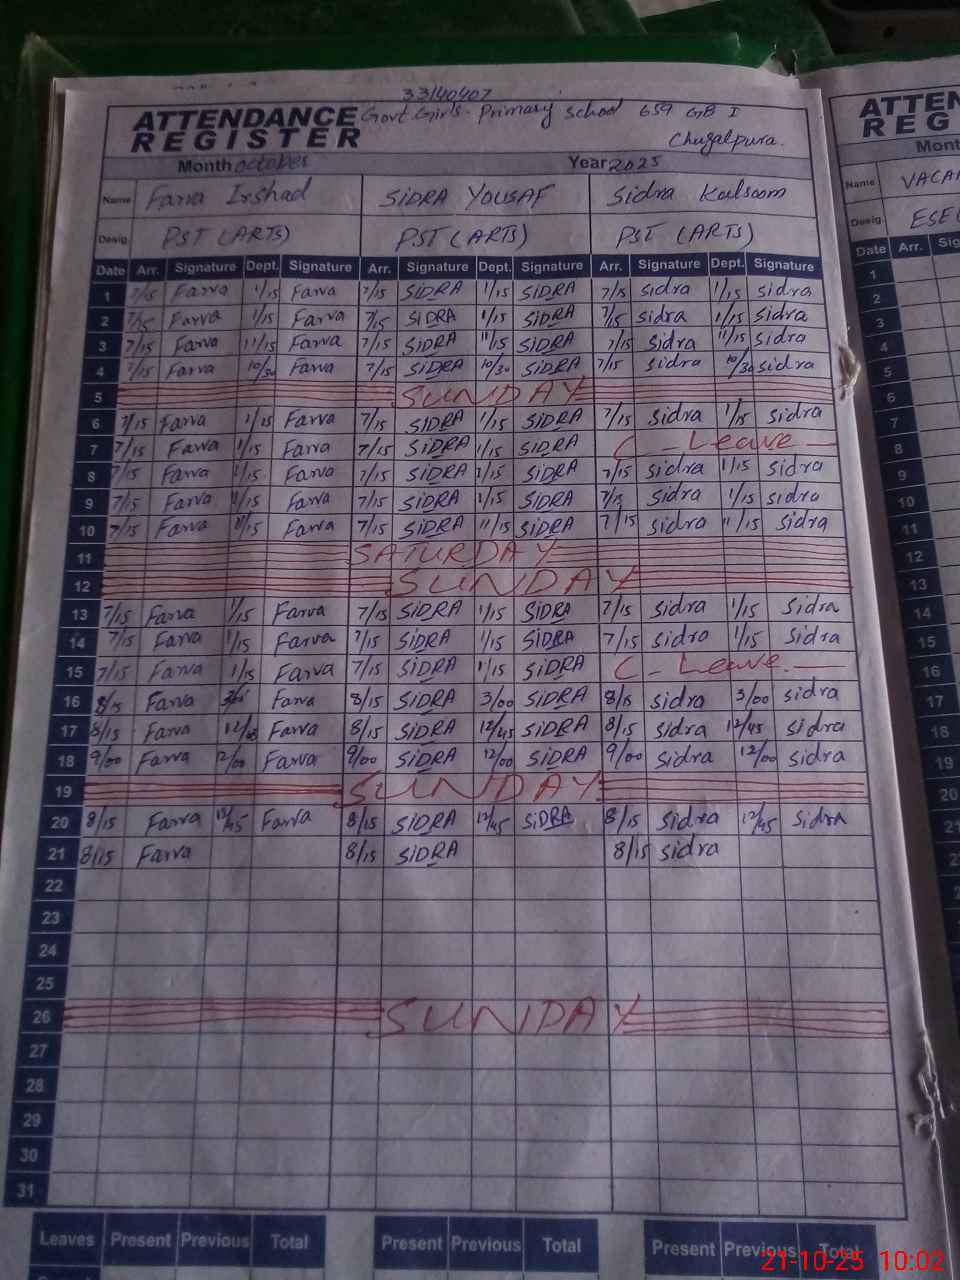 33140407
ATTENDANCE REGISTER Govt. Girls. Primary School 659 GB I
Chugalpura.
Month october Year 2025
Name Farva Irshad SIDRA YOUSAF Sidra Kalsoom
Desig. PST (ARTS) PST (ARTS) PST (ARTS)
Date Arr. Signature Dept. Signature Arr. Signature Dept. Signature Arr. Signature Dept. Signature
1 7/15 Farva 1/15 Farva 7/15 SIDRA 1/15 SIDRA 7/15 Sidra 1/15 sidra
2 7/15 Farva 1/15 Farva 7/15 SIDRA 1/15 SIDRA 7/15 sidra 1/15 sidra
3 7/15 Farva 11/15 Farva 7/15 SIDRA 11/15 SIDRA 7/15 sidra 11/15 sidra
4 7/15 Farva 10/30 Farva 7/15 SIDRA 10/30 SIDRA 7/15 sidra 10/30 sidra
5 SUNDAY
6 7/15 Farva 1/15 Farva 7/15 SIDRA 1/15 SIDRA 7/15 sidra 1/15 sidra
7 7/15 Farva 1/15 Farva 7/15 SIDRA 1/15 SIDRA C - Leave -
8 7/15 Farva 1/15 Farva 7/15 SIDRA 1/15 SIDRA 7/15 sidra 1/15 sidra
9 7/15 Farva 1/15 Farva 7/15 SIDRA 1/15 SIDRA 7/15 sidra 1/15 sidra
10 7/15 Farva 11/15 Farva 7/15 SIDRA 11/15 SIDRA 7/15 sidra 11/15 sidra
11 SATURDAY
12 SUNDAY
13 7/15 Farva 1/15 Farva 7/15 SIDRA 1/15 SIDRA 7/15 sidra 1/15 Sidra
14 7/15 Farva 1/15 Farva 7/15 SIDRA 1/15 SIDRA 7/15 sidra 1/15 sidra
15 7/15 Farva 1/15 Farva 7/15 SIDRA 1/15 SIDRA C - Leave. -
16 8/15 Farva Farva 8/15 SIDRA 3/00 SIDRA 8/15 sidra 3/00 sidra
17 8/15 Farva Farva 8/15 SIDRA 12/45 SIDRA 8/15 sidra 12/45 sidra
18 9/00 Farva Farva 9/00 SIDRA 12/00 SIDRA 9/00 sidra 12/00 sidra
19 SUNDAY
20 8/15 Farva 12/45 Farva 8/15 SIDRA 12/45 SIDRA 8/15 sidra 12/45 sidra
21 8/15 Farva 8/15 SIDRA 8/15 sidra
22
23
24
25
26 SUNDAY
27
28
29
30
31
Leaves Present Previous Total Present Previous Total Present Previous Total
ATTEN
REG
Mont
Name VACA
Desig. ESE(
Date Arr. Sig
1
2
3
4
5
6
7
8
9
10
11
12
13
14
15
16
17
18
19
20
21-10-25 10:02